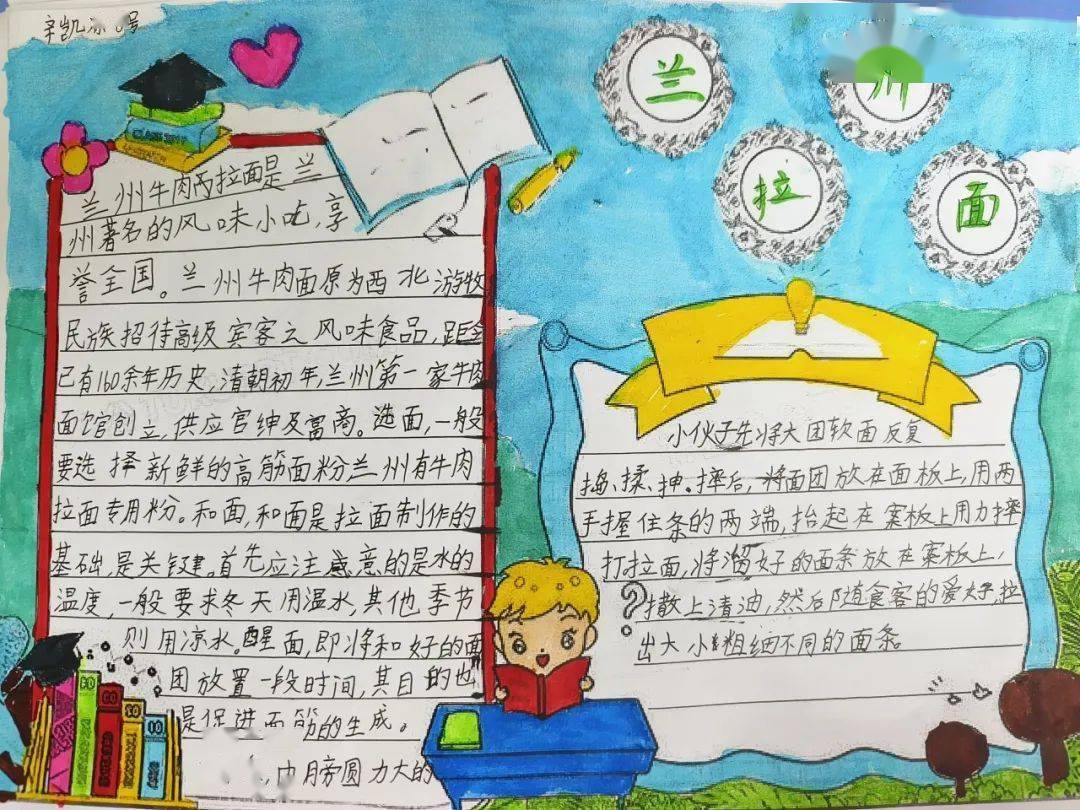 兰州
拉面
兰州牛肉丙拉面是兰
州著名的风味小吃,享
誉全国。兰州牛肉面原为西北游牧
民族招待高级宾客之风味食品,距今
已有160余年历史,清朝初年,兰州第一家牛肉
面馆创立,供应官绅及富商。选面,一般
要选择新鲜的高筋面粉,兰州有牛肉
拉面专用粉。和面,和面是拉面制作的
基础,是关键。首先应注意的是水的
温度,一般要求冬天用温水,其他季节
则用凉水。醒面,即将和好的面
团放置一段时间,其目的也
是促进面筋的生成。
膀圆力大的
小伙子先将大团软面反复
捣、揉、抻、摔后,将面团放在面板上,用两
手握住条的两端,抬起在案板上用力摔
打拉面,将溜好的面条放在案板上,
撒上清油,然后随食客的爱好,拉
出大小粗细不同的面条